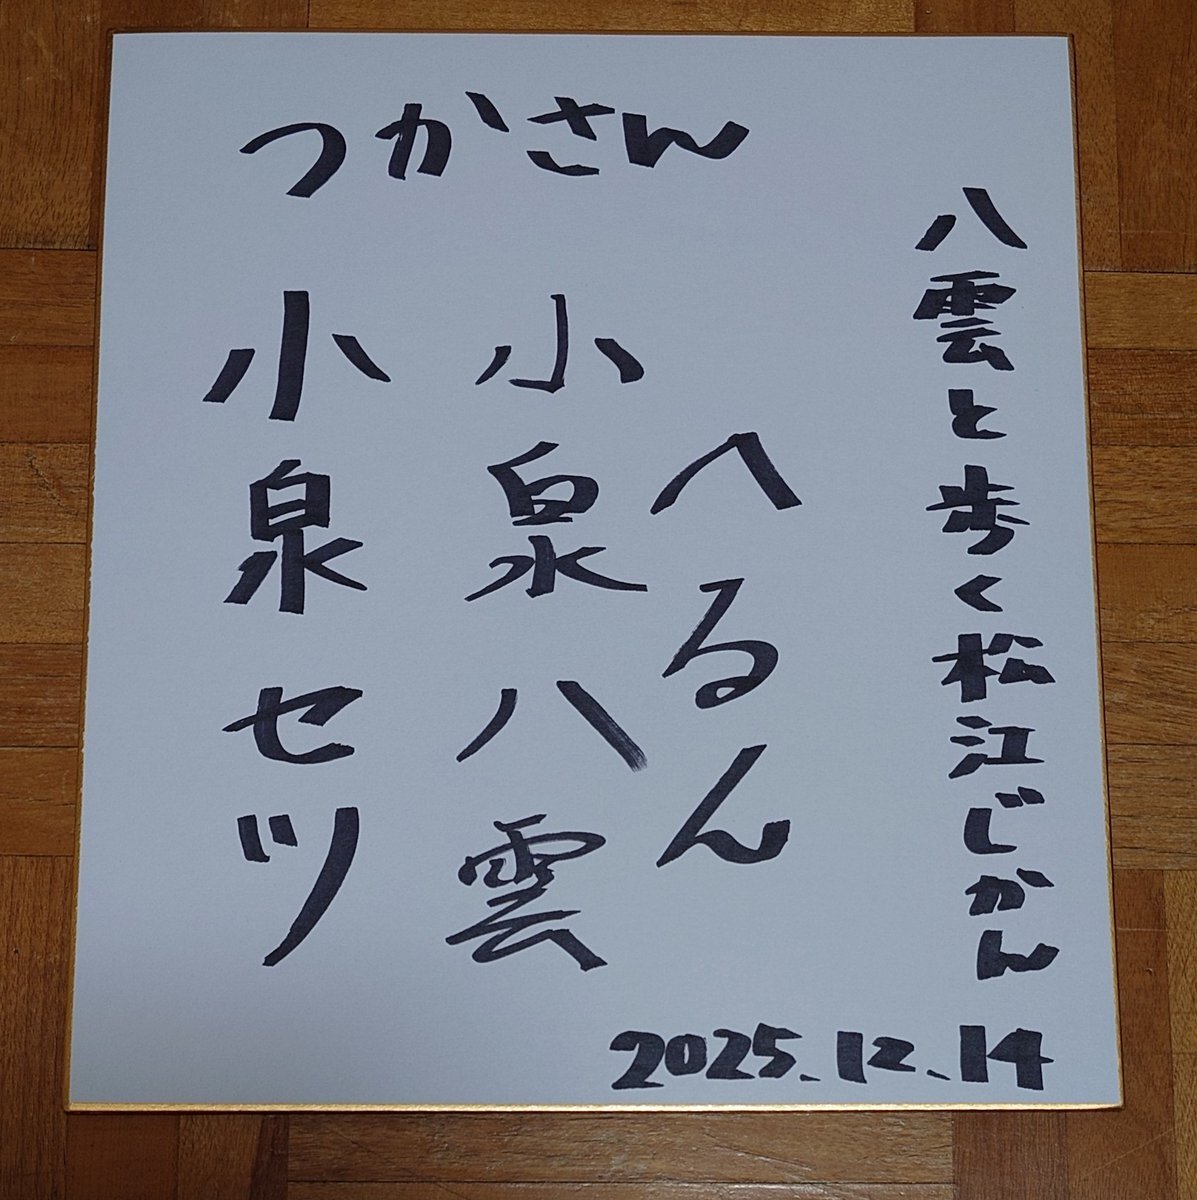 つかさん
八雲と歩く松江じかん
へるん
小泉八雲
小泉セツ
2025.12.14